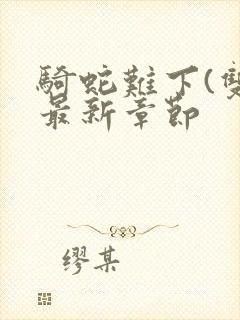 騎蛇難下(雙
最新章節
缪某